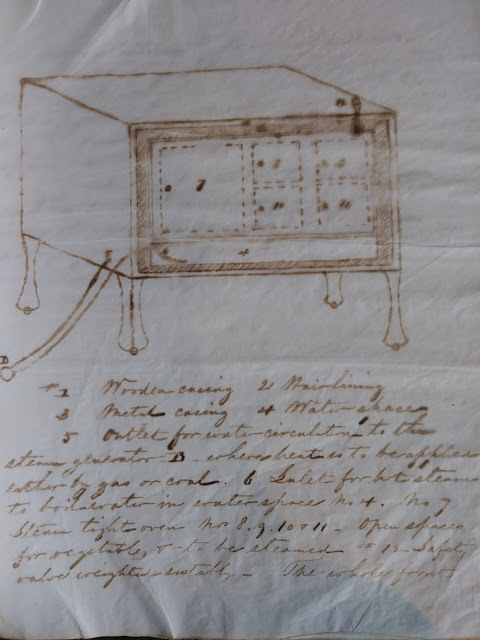 7 8 9
10 11
5 4
B
1 Wooden casing 2 Hair lining
3 Metal casing 4 Water space
5 Outlet for water circulation to the
steam generator B where heat is to be applied
either by gas or coal. 6 Inlet for hot steam
to boil water in water space No 4. No 7
Steam tight oven Nos 8. 9. 10 & 11 - Open spaces
for vegetables &c to be steamed 12 Safety
valve weighted suitably - The whole front